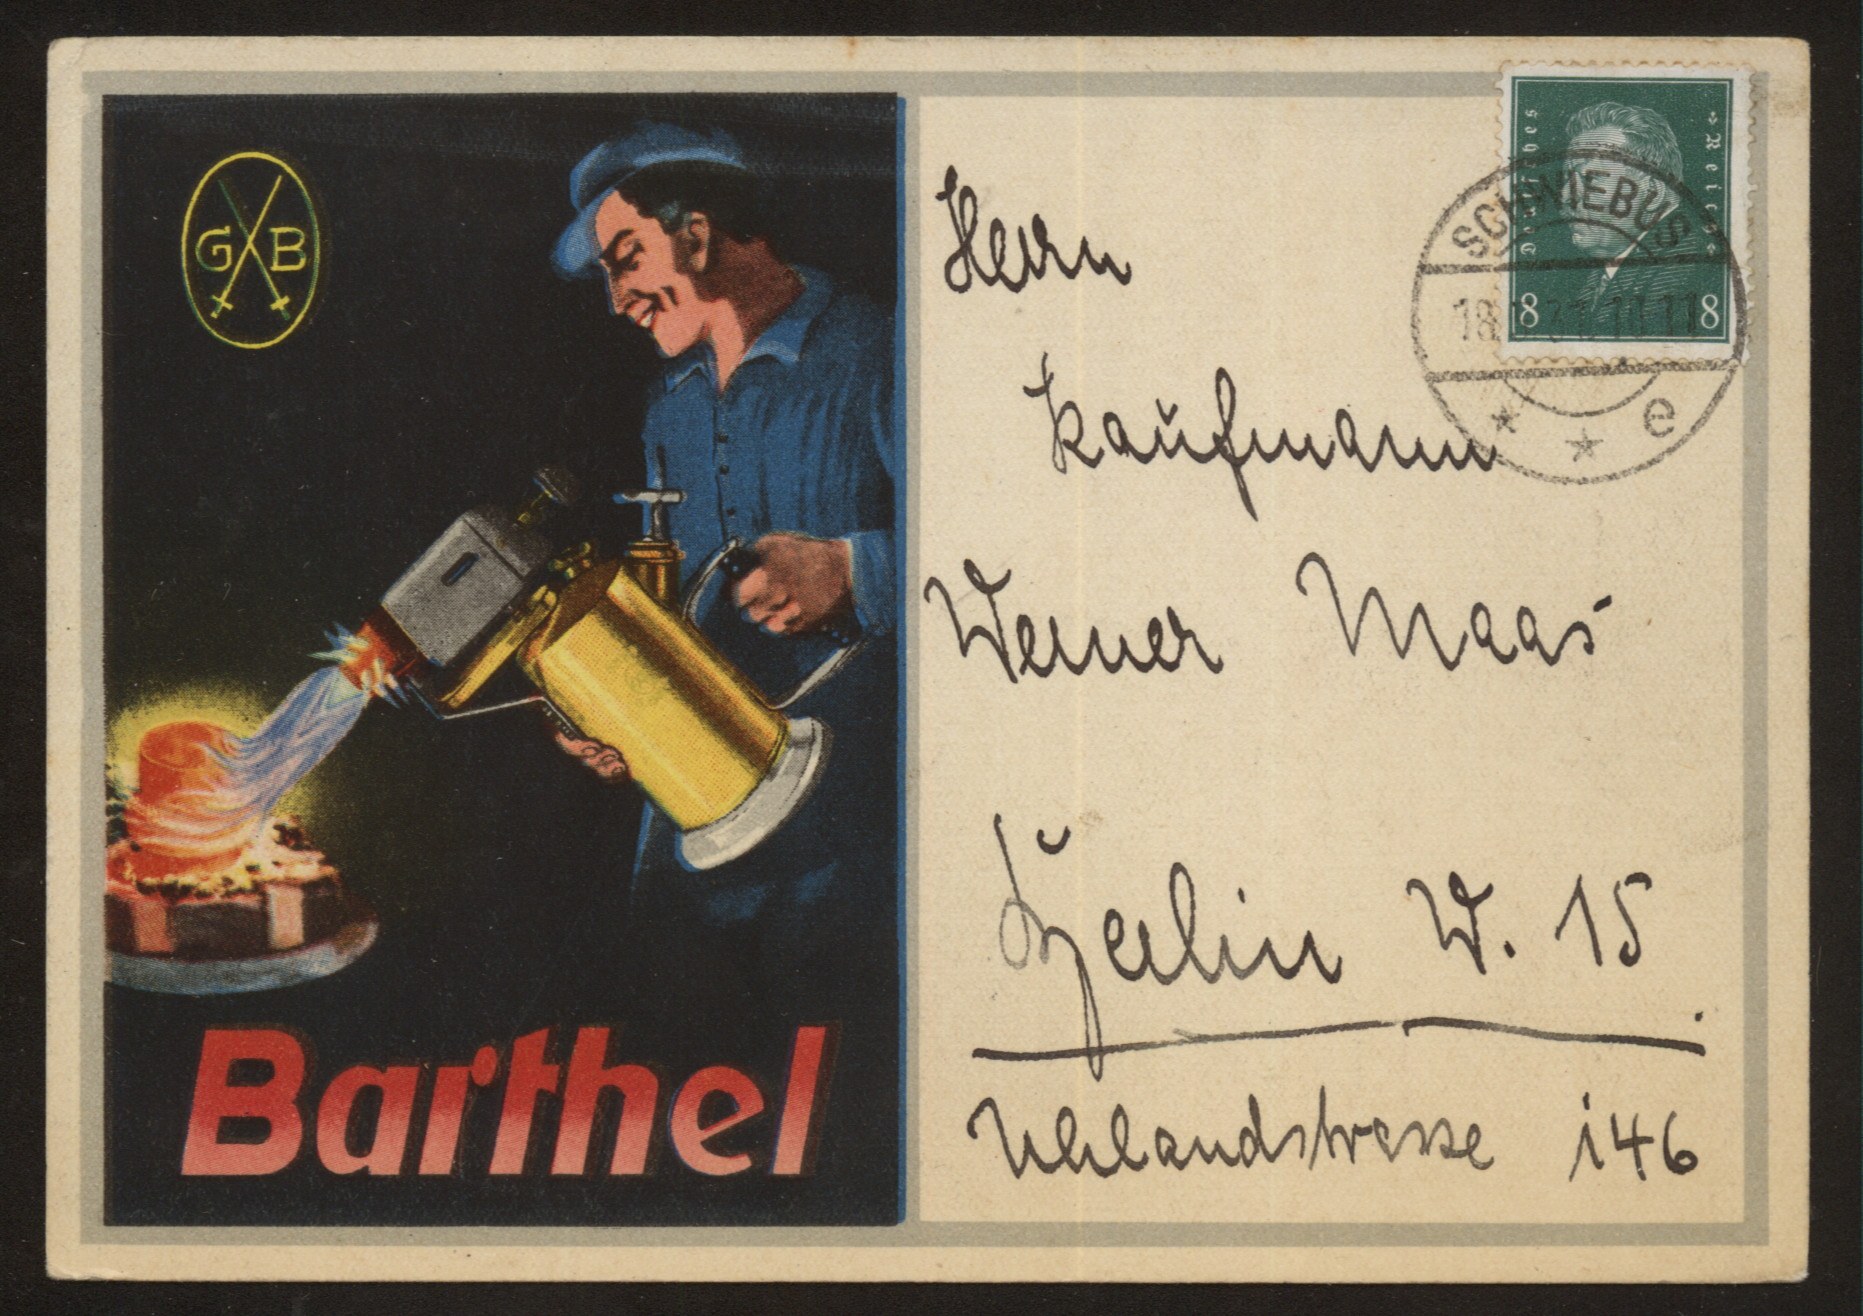 G B
Barthel
Deutsches Reich
8 8
SCHWIEBUS
18
* * e
Herrn
Kaufmann
Werner Maas
Berlin W. 15
Uhlandstrasse 146